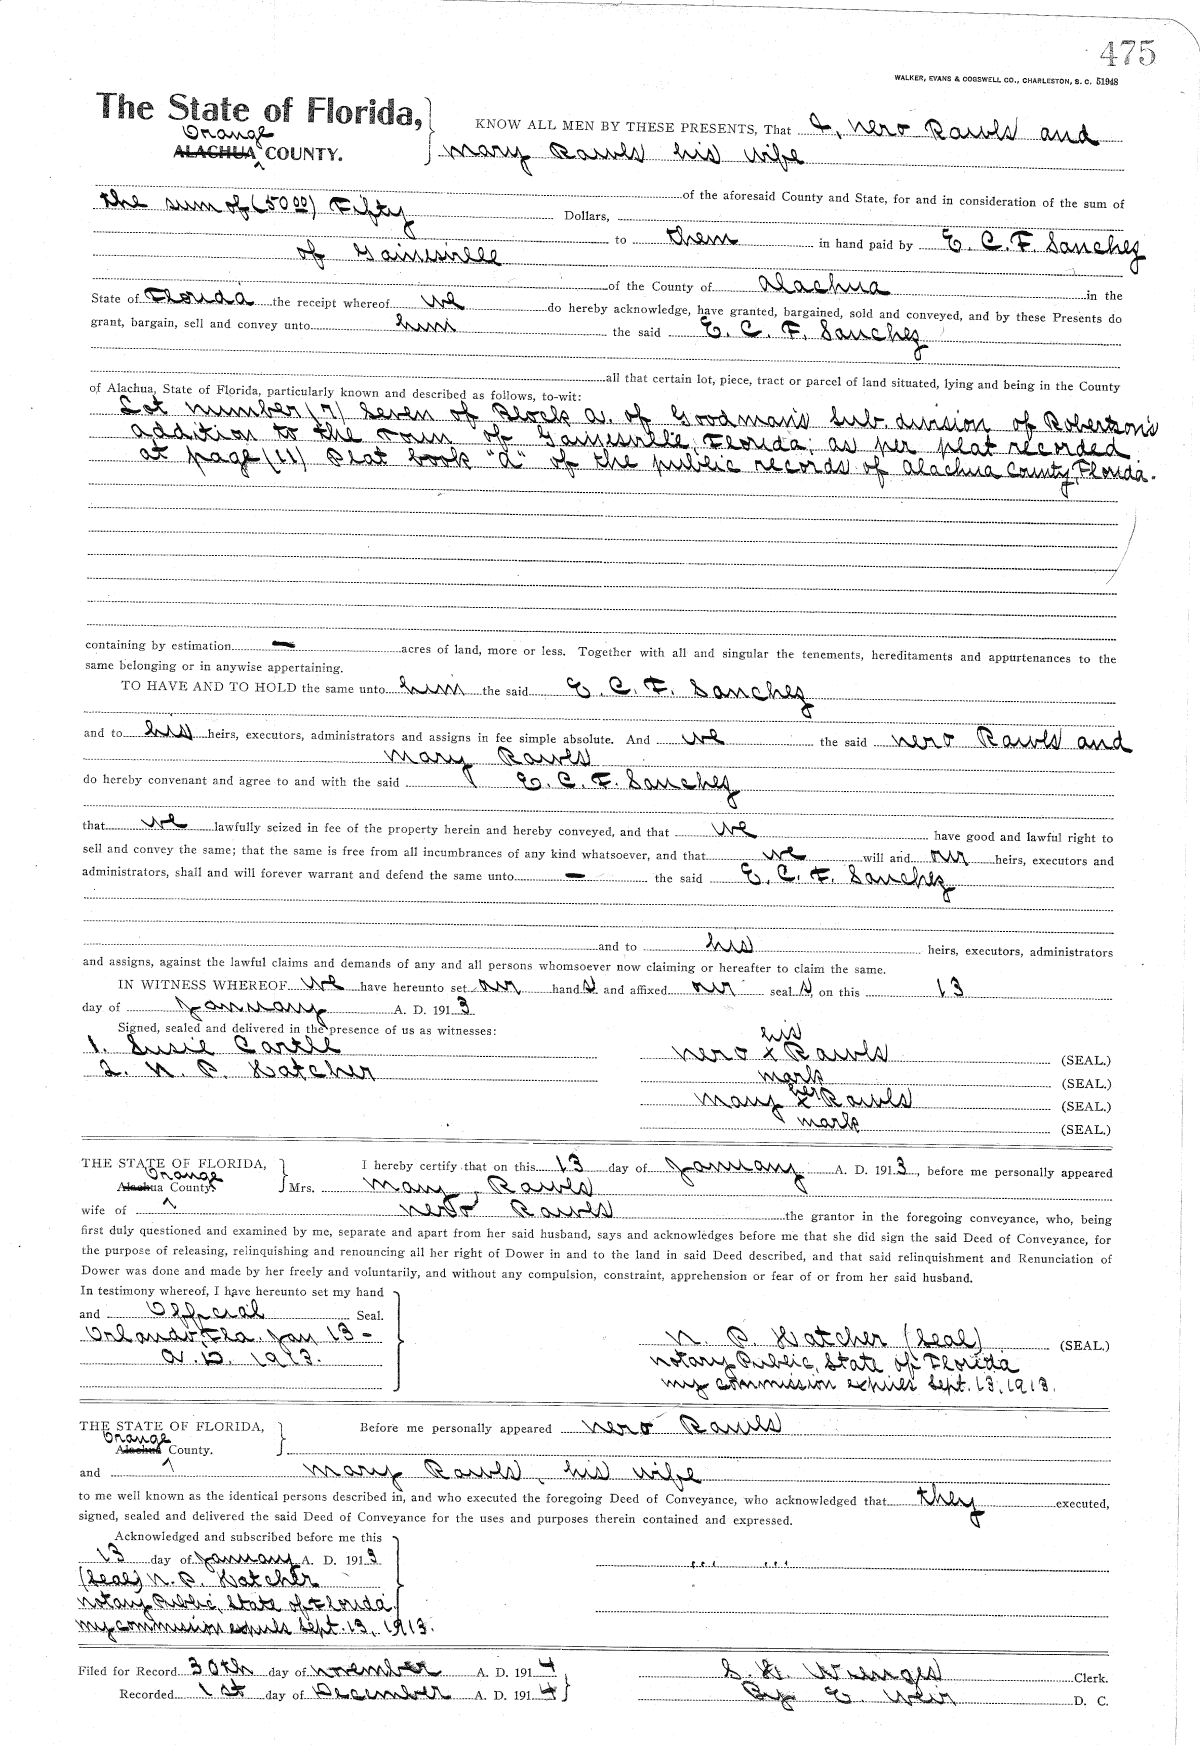 475
WALKER, EVANS & COGSWELL CO., CHARLESTON, S. C. 51948
The State of Florida,
Orange
ALACHUA COUNTY.
KNOW ALL MEN BY THESE PRESENTS, That I, Nero Rawls and
Mary Rawls his wife
of the aforesaid County and State, for and in consideration of the sum of
the sum of (50 00) Fifty Dollars,
to them in hand paid by E. C. F. Sanchez
of Gainesville
of the County of Alachua in the
State of Florida the receipt whereof we do hereby acknowledge, have granted, bargained, sold and conveyed, and by these Presents do
grant, bargain, sell and convey unto him the said E. C. F. Sanchez
all that certain lot, piece, tract or parcel of land situated, lying and being in the County
of Alachua, State of Florida, particularly known and described as follows, to-wit:
Lot number (7) Seven of Block A. of Goodman's Sub. division of Robertson's
addition to the Town of Gainesville, Florida; as per plat recorded
at page (11) Plat book "A" of the public records of Alachua County, Florida.
containing by estimation — acres of land, more or less. Together with all and singular the tenements, hereditaments and appurtenances to the
same belonging or in anywise appertaining.
TO HAVE AND TO HOLD the same unto him the said E. C. F. Sanchez
and to his heirs, executors, administrators and assigns in fee simple absolute. And we the said Nero Rawls and
Mary Rawls
do hereby convenant and agree to and with the said E. C. F. Sanchez
that we lawfully seized in fee of the property herein and hereby conveyed, and that we have good and lawful right to
sell and convey the same; that the same is free from all incumbrances of any kind whatsoever, and that we will and our heirs, executors and
administrators, shall and will forever warrant and defend the same unto — the said E. C. F. Sanchez
and to his heirs, executors, administrators
and assigns, against the lawful claims and demands of any and all persons whomsoever now claiming or hereafter to claim the same.
IN WITNESS WHEREOF we have hereunto set our hand s and affixed our seal s, on this 13
day of January A. D. 191 3.
Signed, sealed and delivered in the presence of us as witnesses:
1. Susie Cartll
2. N. P. Hatcher
his
Nero x Rawls (SEAL.)
mark (SEAL.)
her
Mary x Rawls (SEAL.)
mark (SEAL.)
THE STATE OF FLORIDA,
Orange
Alachua County.
I hereby certify that on this 13 day of January A. D. 191 3, before me personally appeared
Mrs. Mary Rawls
wife of Nero Rawls the grantor in the foregoing conveyance, who, being
first duly questioned and examined by me, separate and apart from her said husband, says and acknowledges before me that she did sign the said Deed of Conveyance, for
the purpose of releasing, relinquishing and renouncing all her right of Dower in and to the land in said Deed described, and that said relinquishment and Renunciation of
Dower was done and made by her freely and voluntarily, and without any compulsion, constraint, apprehension or fear of or from her said husband.
In testimony whereof, I have hereunto set my hand
and Official Seal.
Orlando, Fla. Jan 13 -
A. D. 1913.
N. P. Hatcher (Seal) (SEAL.)
Notary Public, State of Florida
My commission expires Sept. 13, 1913.
THE STATE OF FLORIDA,
Orange
Alachua County.
Before me personally appeared Nero Rawls
and Mary Rawls, his wife
to me well known as the identical persons described in, and who executed the foregoing Deed of Conveyance, who acknowledged that they executed,
signed, sealed and delivered the said Deed of Conveyance for the uses and purposes therein contained and expressed.
Acknowledged and subscribed before me this
13 day of January A. D. 191 3
(Seal) N. P. Hatcher
Notary Public, State of Florida
My commission expires Sept. 13, 1913.
Filed for Record 30th day of November A. D. 191 4
Recorded 1st day of December A. D. 191 4
S. H. Wienges Clerk.
By E. Weir D. C.